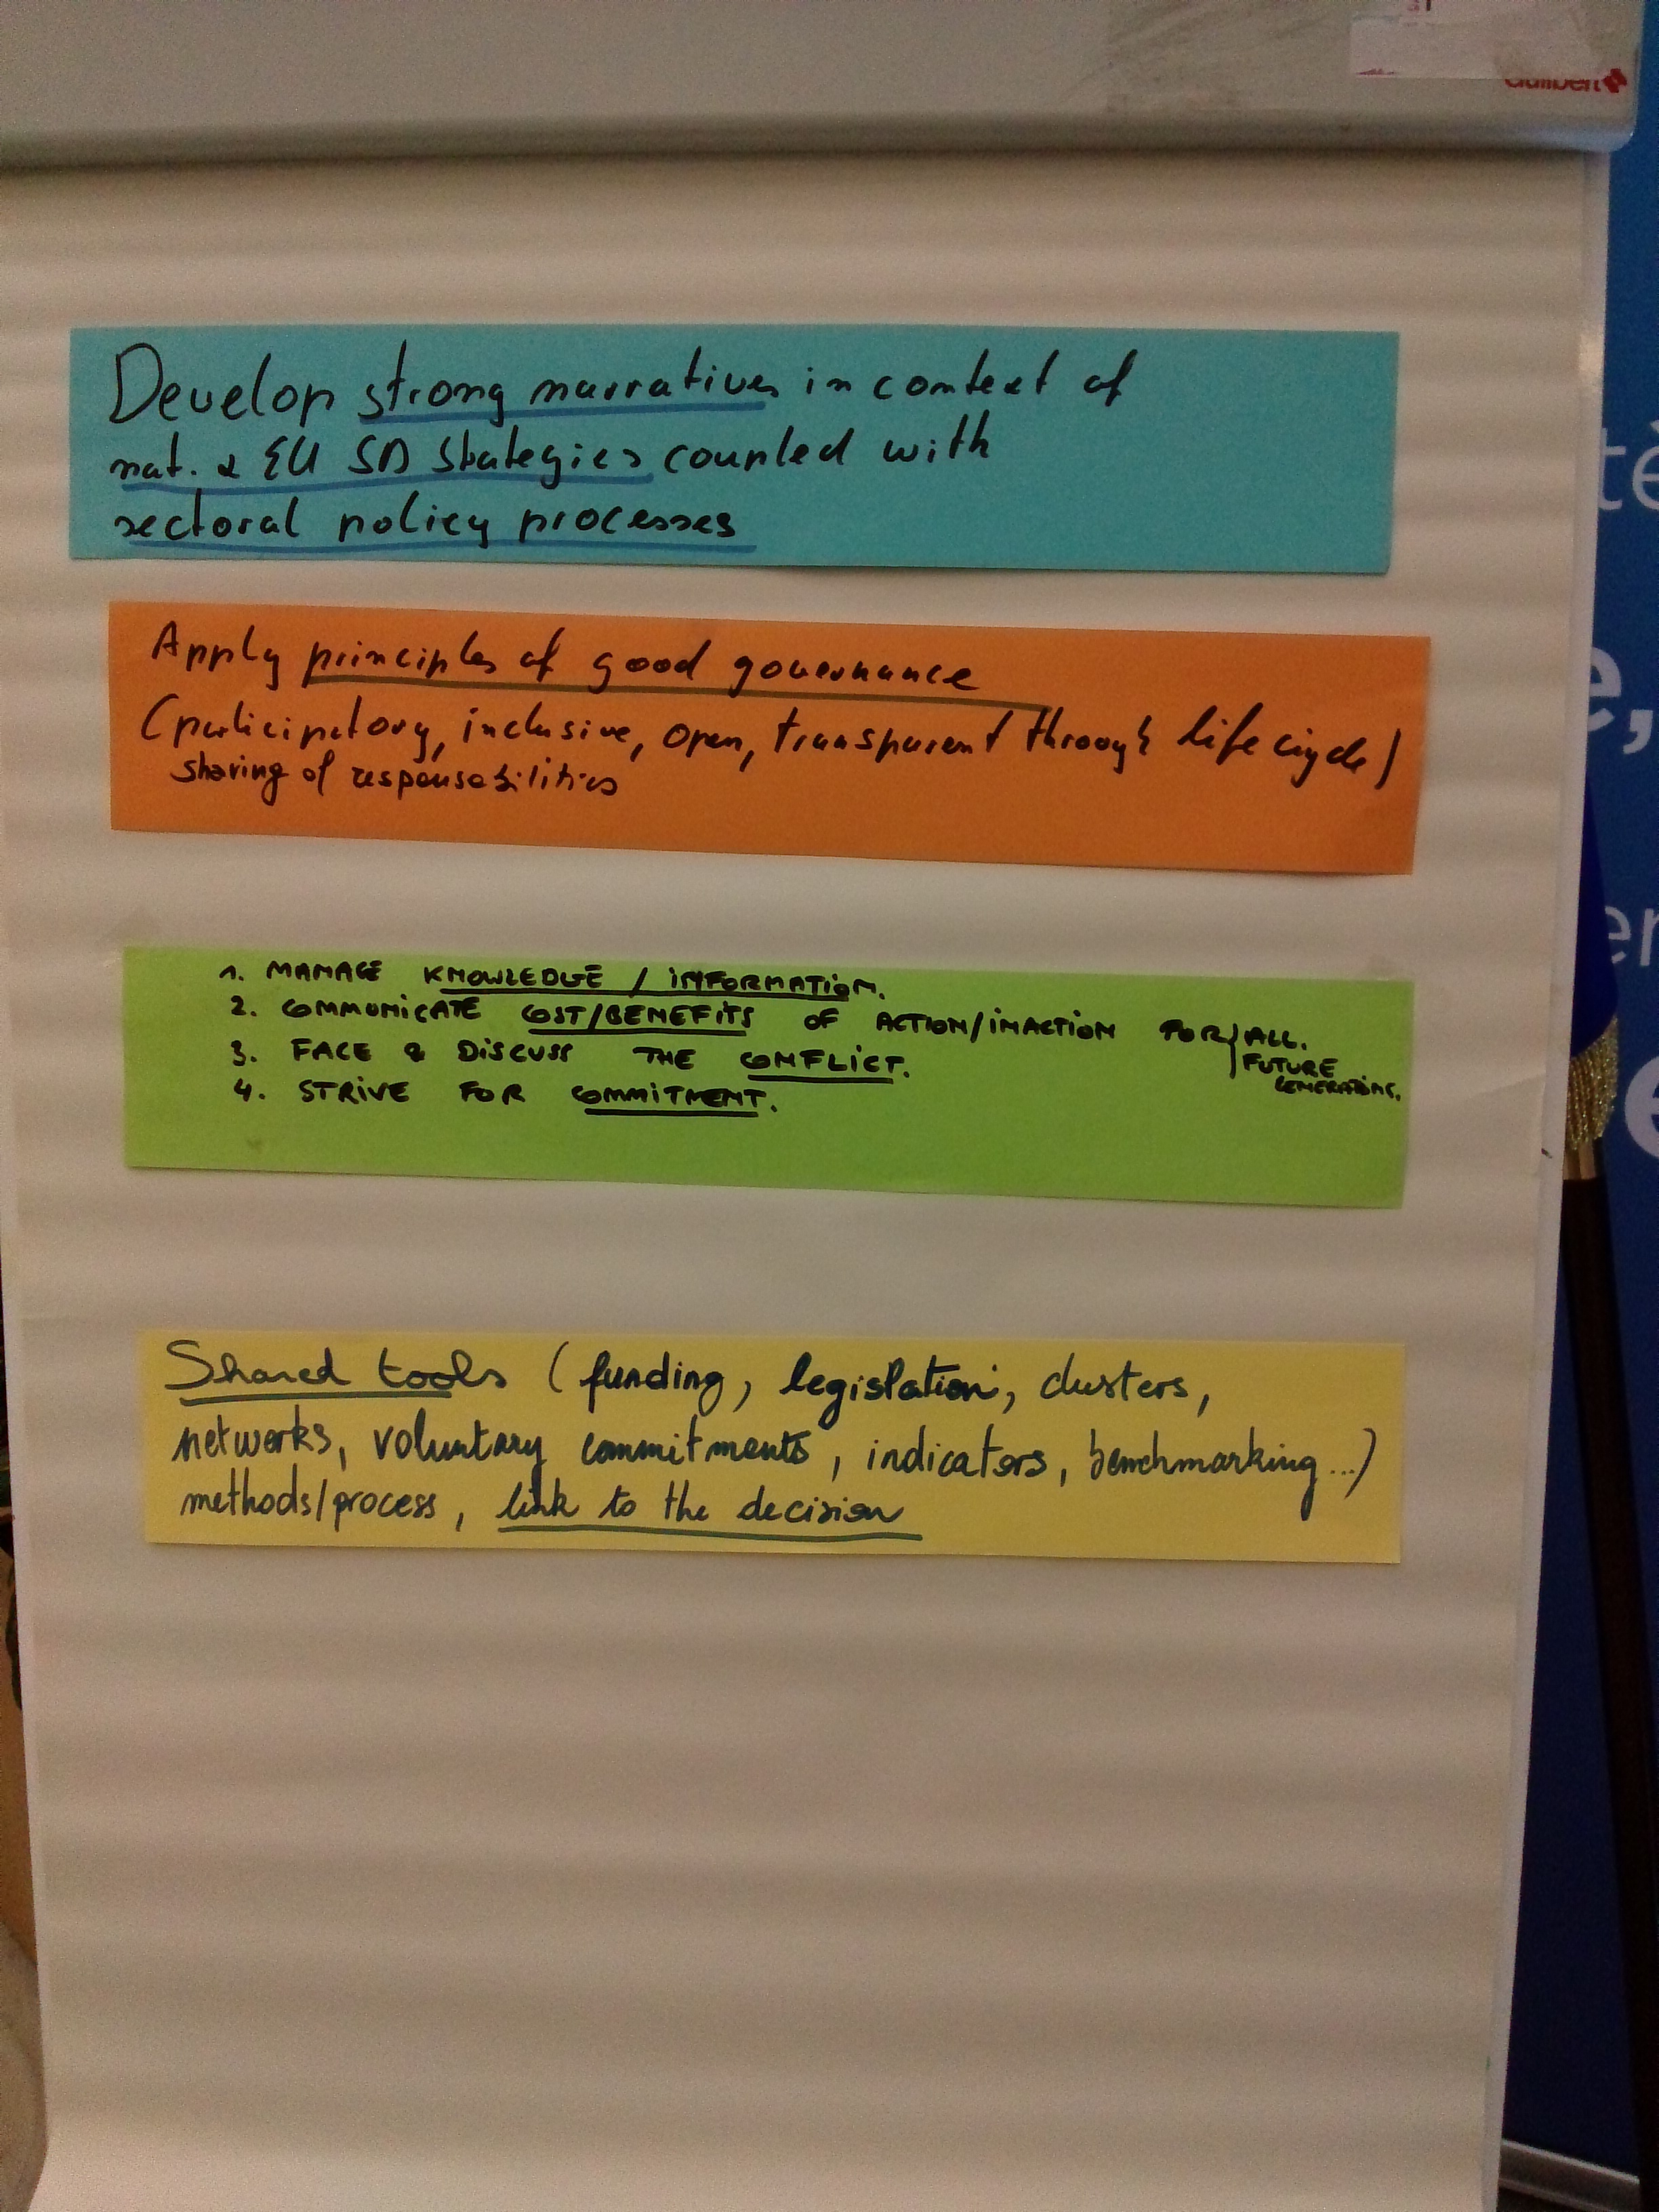 Develop strong narratives in context of
nat. & EU SD Strategies coupled with
sectoral policy processes
Apply principles of good governance
(participatory, inclusive, open, transparent through life cycle)
sharing of responsabilities
1. MANAGE KNOWLEDGE / INFORMATION.
2. COMMUNICATE COST/BENEFITS OF ACTION/INACTION FOR ALL.
FUTURE
GENERATIONS.
3. FACE & DISCUSS THE CONFLICT.
4. STRIVE FOR COMMITMENT.
Shared tools (funding, legislation, clusters,
networks, voluntary commitments, indicators, benchmarking...)
methods/process, link to the decision